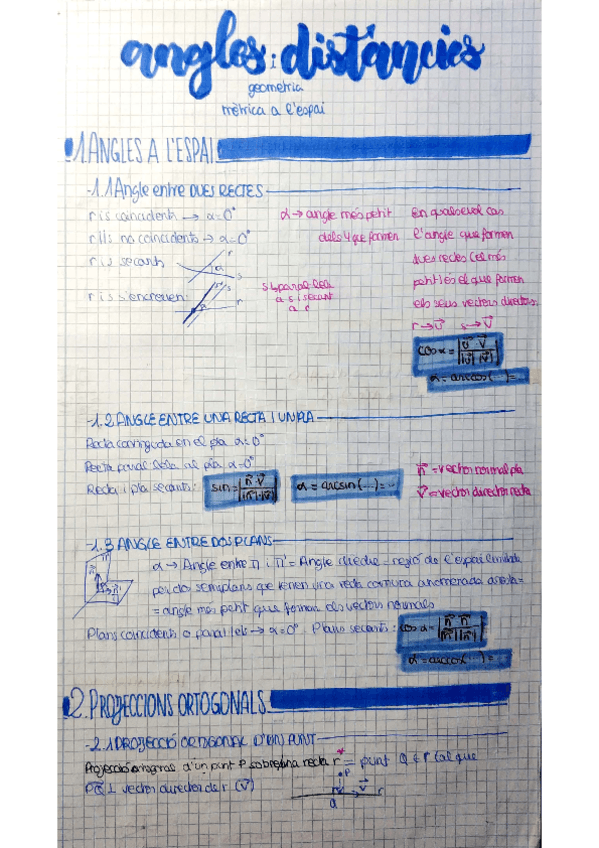 angles i distàncies
geometria
mètrica a l'espai
1. ANGLES A L'ESPAI
-1.1 Angle entre DUES RECTES
r i s coincidents → α=0°
r||s no coincidents → α=0°
r i s secants
r
α
s
r i s s'encreuen:
s' s
r
α
α → angle més petit
dels 4 que formen
s' paral·lela
a s i secant
a r
En qualsevol cas
l'angle que formen
dues rectes (el més
petit) és el que formen
els seus vectors directors.
r→u⃗ s→v⃗
cos α = |u⃗·v⃗| / |u⃗|·|v⃗|
α = arccos(...)=...
-1.2 ANGLE ENTRE UNA RECTA I UN PLA
Recta continguda en el pla α=0°
Recta paral·lela al pla α=0°
Recta i pla secants:
sin = |n⃗·v⃗| / |n⃗|·|v⃗|
α = arcsin(...)=...
n⃗ = vector normal pla
v⃗ = vector director recta
-1.3 ANGLE ENTRE DOS PLANS
α → Angle entre π i π' = Angle díedre = regió de l'espai limitada
per dos semiplans que tenen una recta comuna anomenada aresta =
= angle més petit que formen els vectors normals
Plans coincidents o paral·lels → α=0°. Plans secants: cos α = |n⃗·n⃗'| / |n⃗|·|n⃗'|
α = arccos(...)=
2. PROJECCIONS ORTOGONALS
-2.1 PROJECCIÓ ORTOGONAL D'UN PUNT
Projecció ortogonal d'un punt P sobre una recta r* = punt Q ∈ r tal que
PQ⃗ ⊥ vector director de r (v⃗)
P
v⃗
r
Q